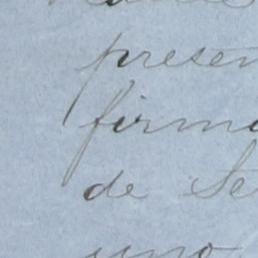 presen
firma
de Se
uno